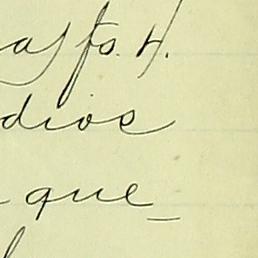 a fs. 4.
dios
que_